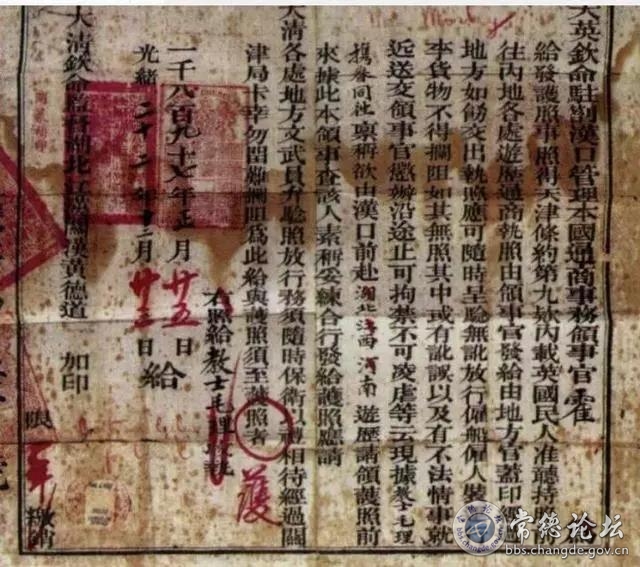 大英欽命駐劄漢口管理本國通商事務領事官霍
給發護照事照得天津條約第九欵內載英國民人准聽持照前
往內地各處遊歷通商執照由領事官發給由地方官蓋印經過
地方如飭交出執照應可隨時呈驗無訛放行僱船僱人裝運行
李貨物不得攔阻如其無照其中或有訛誤以及有不法情事就
近送交領事官懲辦沿途止可拘禁不可凌虐等云現據教士毛理
攜眷同社稟稱欲由漢口前赴湖北 陝西 河南 遊歷請領護照前
來據此本領事查該人素稱妥練合行發給護照應請
大清各處地方文武員弁驗照放行務須隨時保衛以禮相待經過關
津局卡幸勿留難攔阻爲此給與護照須至護照者
護
右照給教士毛理
一千八百九十七年正月廿五日 給
光緒二十二年十二月廿三日
大清欽命監督湖北江漢關漢黃德道 加印
限 年 繳銷
Mr. Morley
常德论坛
bbs.changde.gov.cn